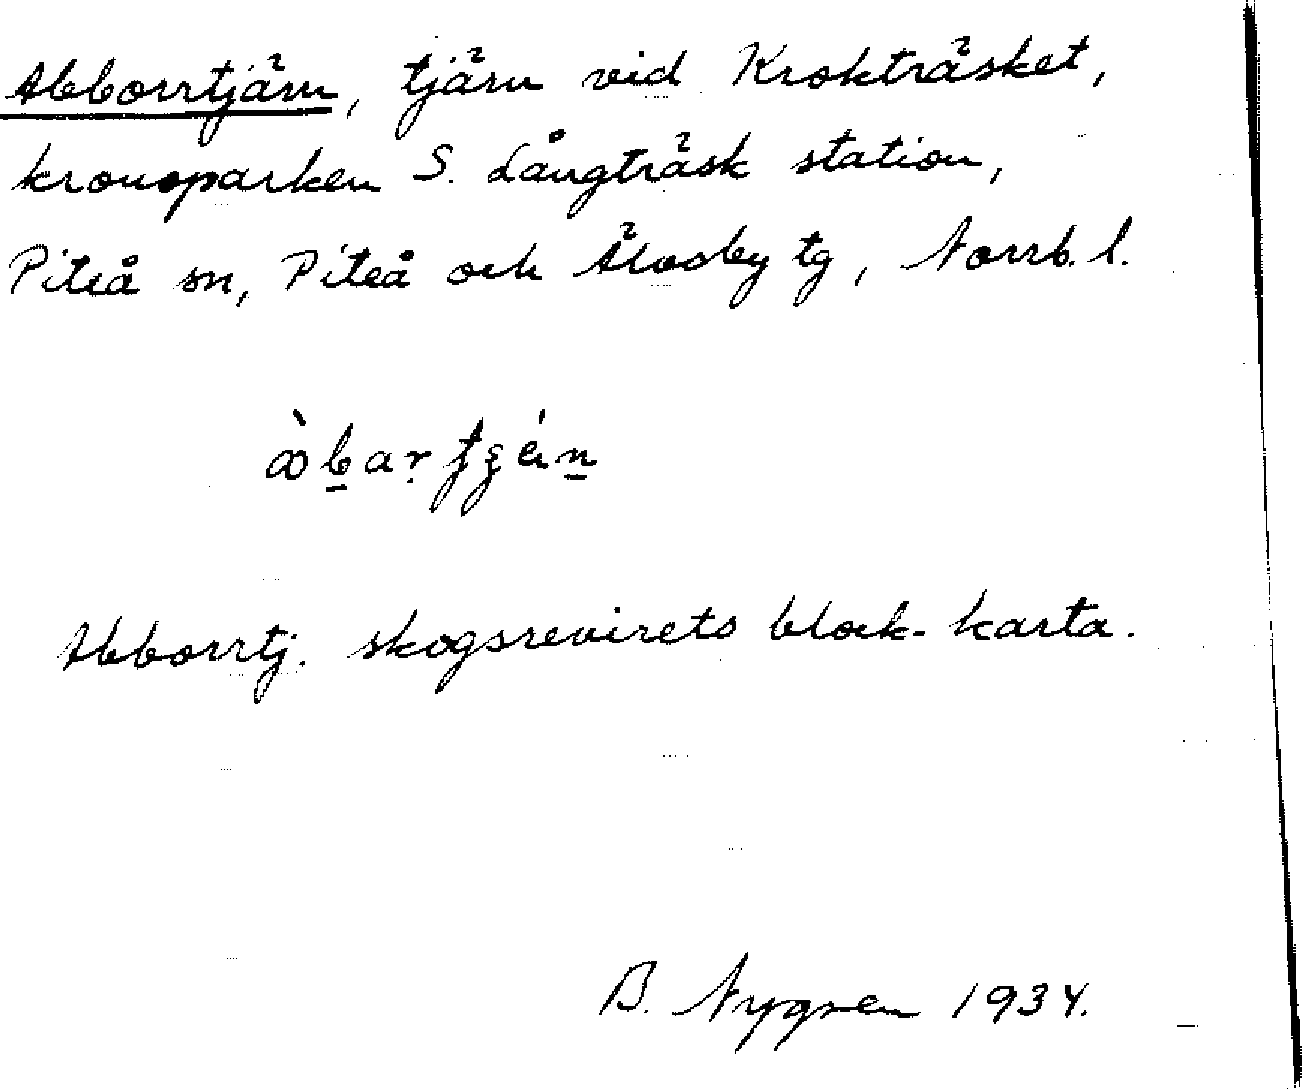 Abborrtjärn, tjärn vid Krokträsket,
kronoparken S. Långträsk station,
Piteå sn, Piteå och Älvsby tg, Norrb. l.
Abborrtj. skogsrevirets block-karta.
B. Nygren 1934.